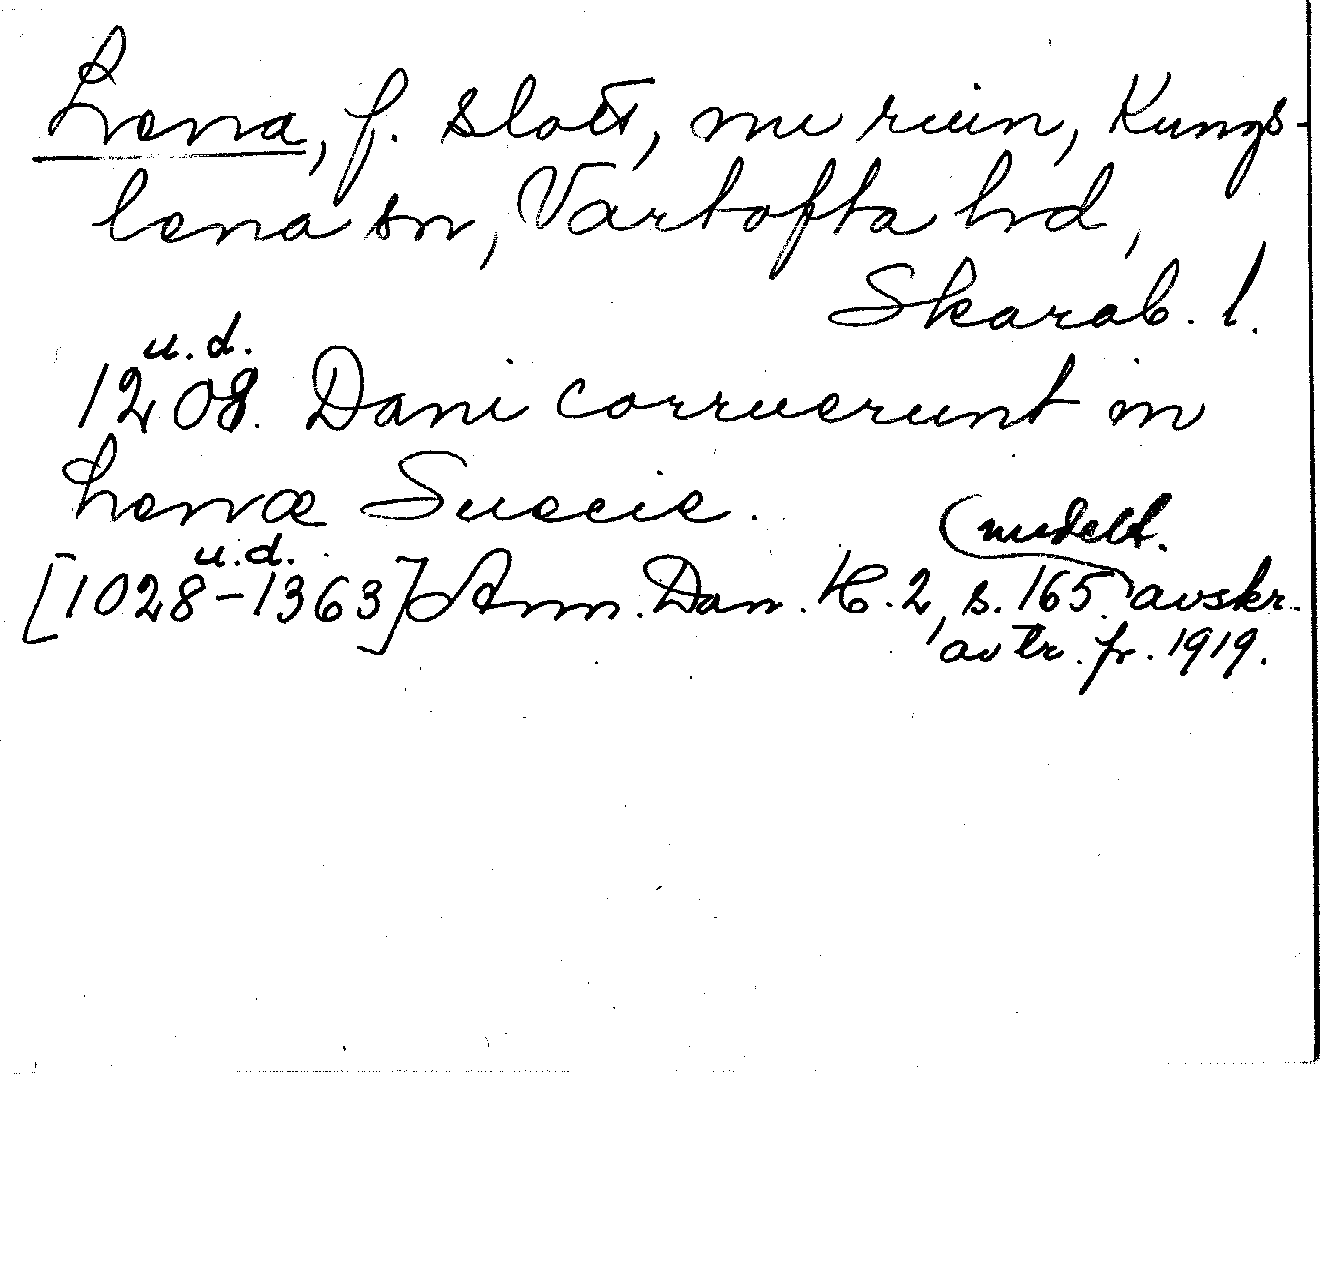 Lena, f. slott, nu ruin, Kungs-
lena sn, Vartofta hd,
Skarab. l.
u.d.
1208. Dani corruerunt in
Lenæ Suecie.
u.d.
[1028-1363] Ann. Dan. H. 2, s. 165 avskr.
av tr. fr. 1919.